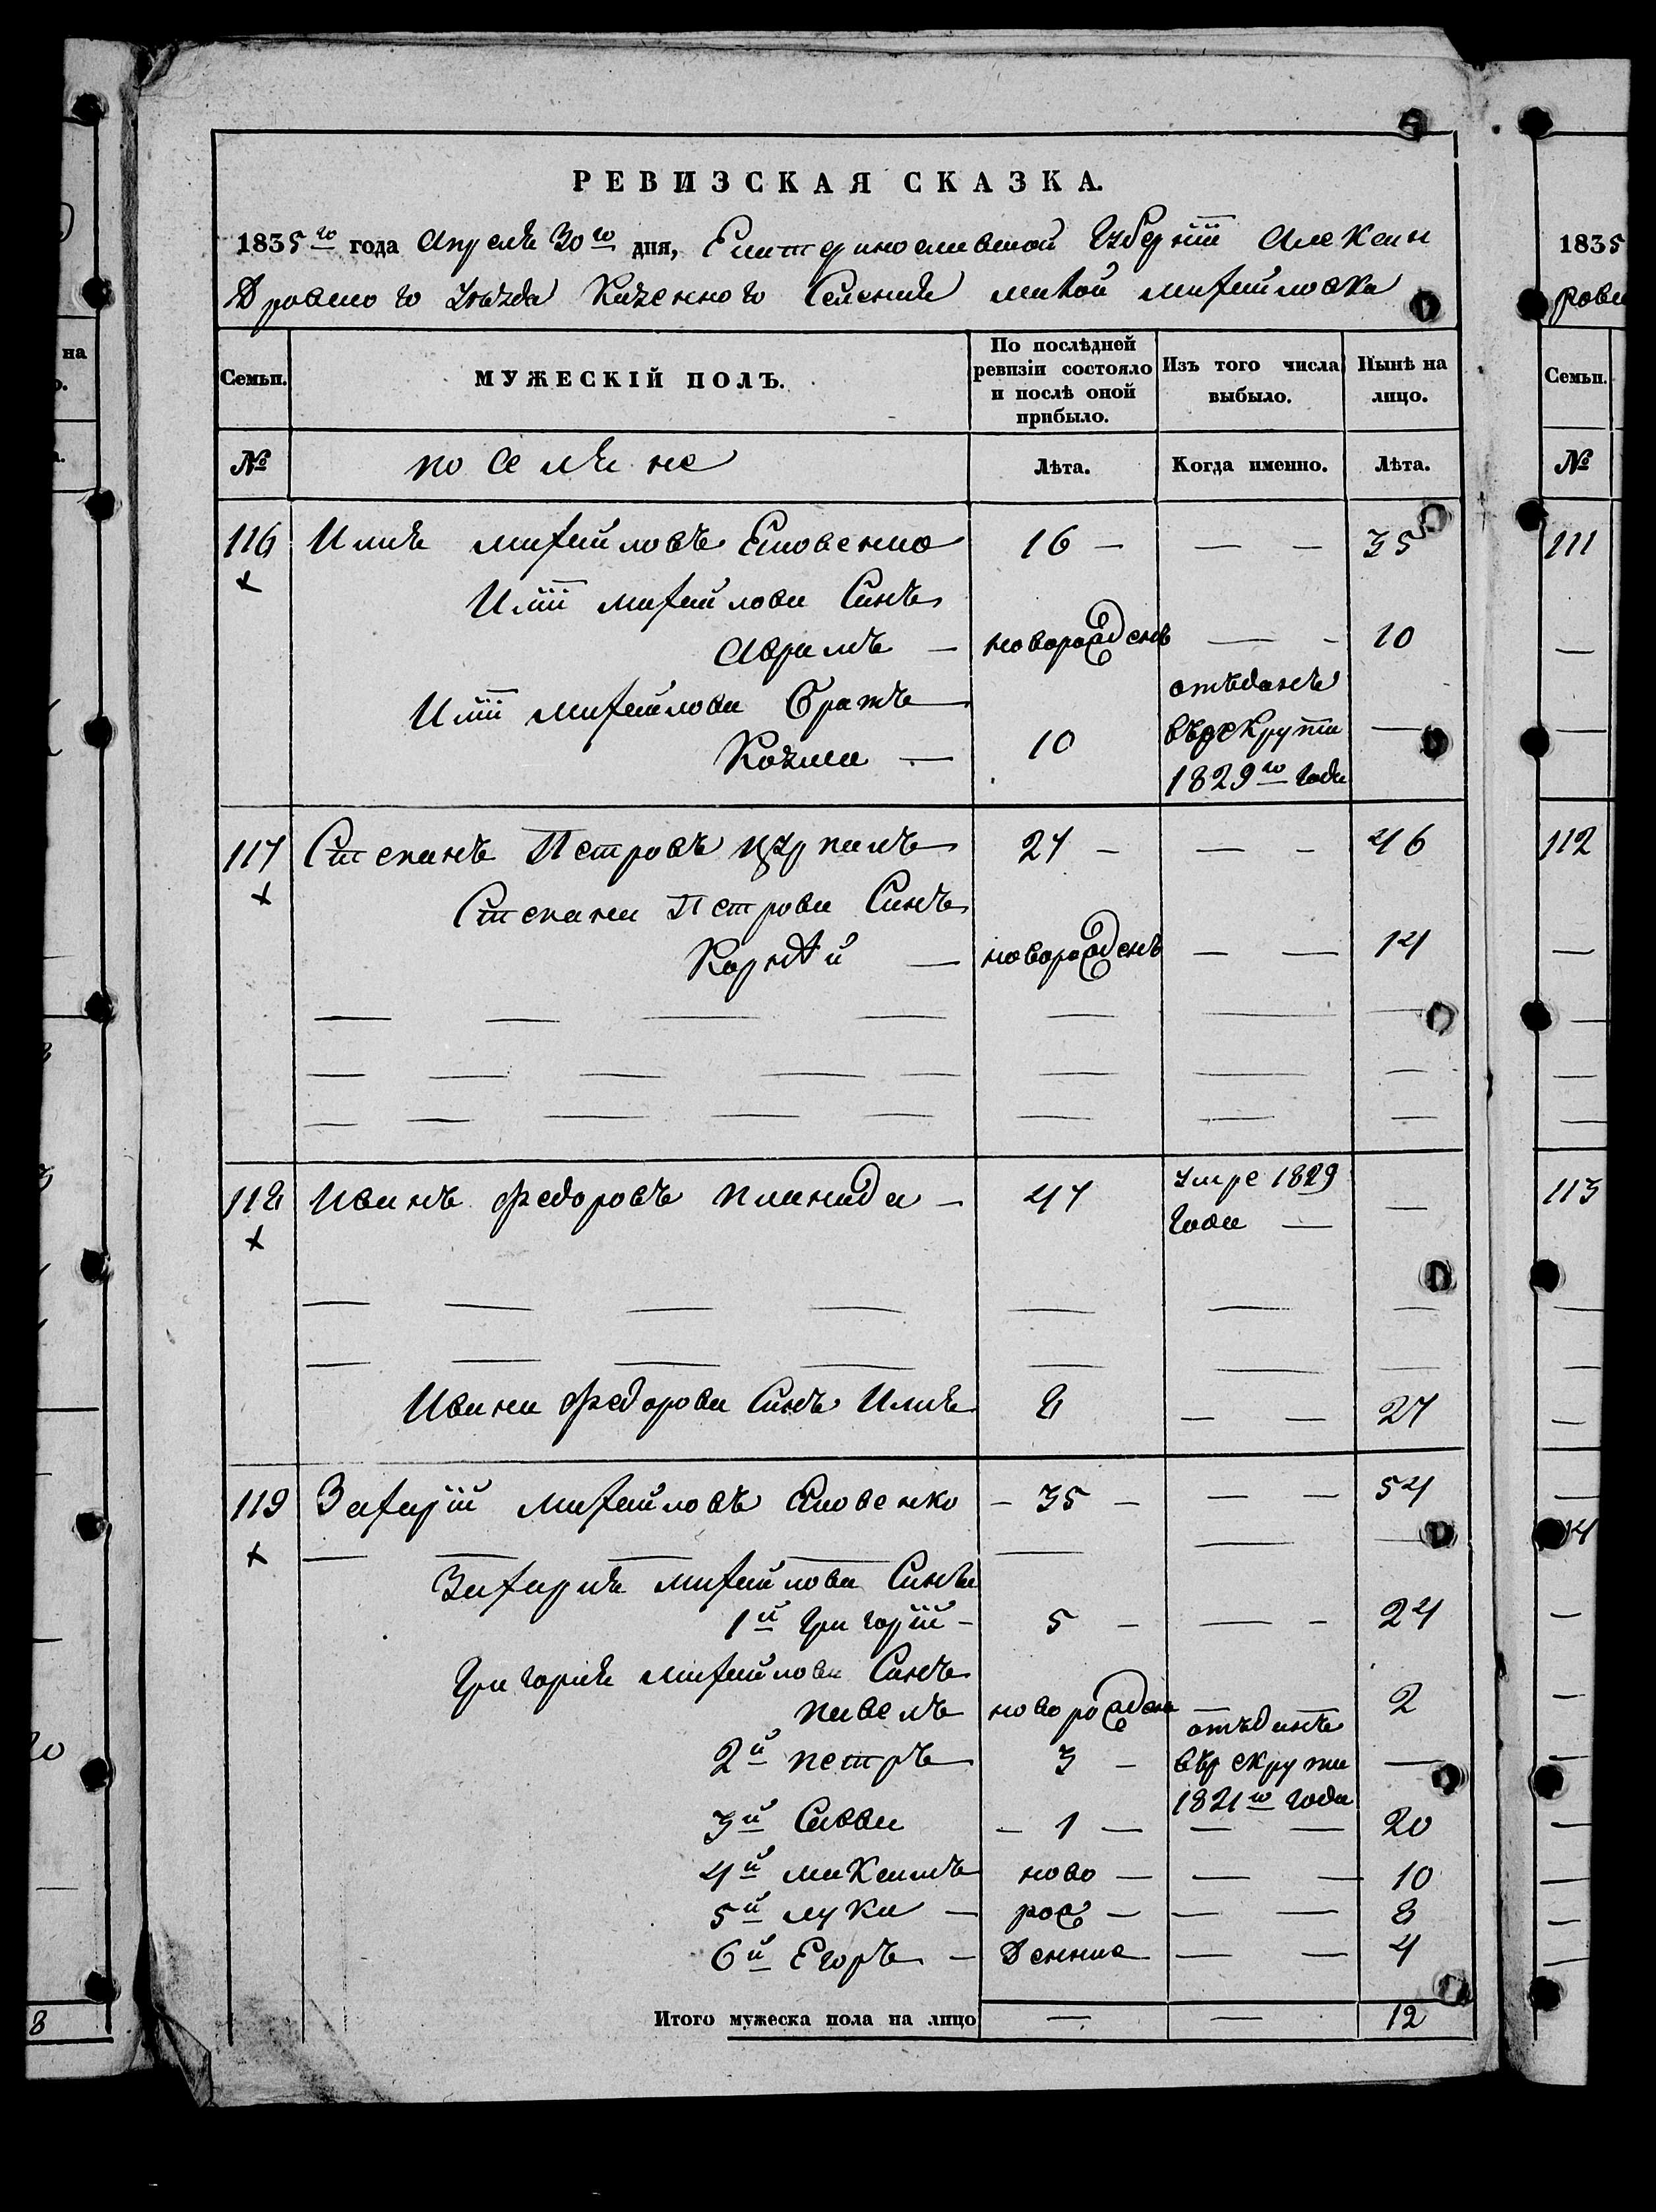 РЕВИЗСКАЯ СКАЗКА.
1835го года Апреля 30го дня, Екатеринославской Губернiи Алексан
Дровского уѣзда Казенного Селения малой михайловки
Семьи. МУЖЕСКIЙ ПОЛЪ. По послѣдней ревизiи состояло и послѣ оной прибыло. Изъ того числа выбыло. Нынѣ на лицо.
№ поселяне Лѣта. Когда именно. Лѣта.
116 Илья михайловъ 16 — — — 35
Илiи михайлова Синъ
Аврамъ — новорожденъ — - 10
Илiи михайлова Братъ отъданъ
Козма — 10 върекруты —
1829го года
117 Степанъ Петровъ 27 — — - 46
Степана Петрова Синъ
Корнѣй — новорожденъ — — 14
118 Иванъ Федоровъ 47 умре 1829 —
года —
Ивана Федорова Синъ Илья 8 — — 27
119 Захарiй михайловъ — 35 — — — 54
Захария михайлова Сины
1й Григорiй — 5 — — - 24
Григория михайлова Синъ
павелъ новорожденъ — 2
2й петръ 3 — отъданъ въ рекруты —
1821го года
3й Савва — 1 — — — 20
4й макСимъ ново — — — 10
5й лука — рож — — — 8
6й Егоръ — Денние — — 4
Итого мужеска пола на лицо — — 12
1835
Семьи.
№
111
112
113
на
8